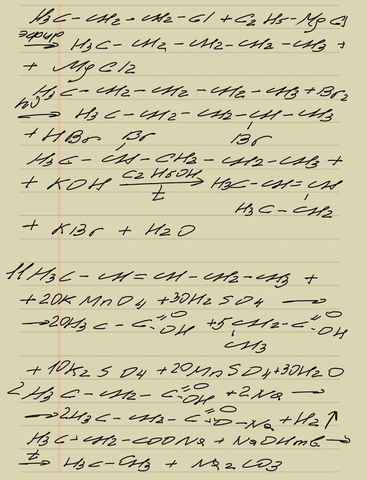 H3C - CH2 - CH2 - Cl + C2H5 - MgCl
эфир → H3C - CH2 - CH2 - CH2 - CH3 +
+ MgCl2
H3C - CH2 - CH2 - CH2 - CH3 + Br2
hν → H3C - CH2 - CH2 - CH - CH3
+ HBr Br Br
H3C - CH - CH2 - CH2 - CH3 +
+ KOH C2H5OH → t H3C - CH = CH
H3C - CH2
+ KBr + H2O
11 H3C - CH = CH - CH2 - CH3 +
+ 20KMnO4 + 30H2SO4 →
→ 20H3C - C =O OH + 5 CH2 - C =O OH
CH3
+ 10K2SO4 + 20MnSO4 + 30H2O
2 H3C - CH2 - C =O OH + 2Na →
→ 2H3C - CH2 - C =O O-Na + H2↑
H3C - CH2 - COONa + NaOH тв →
t → H3C - CH3 + Na2CO3